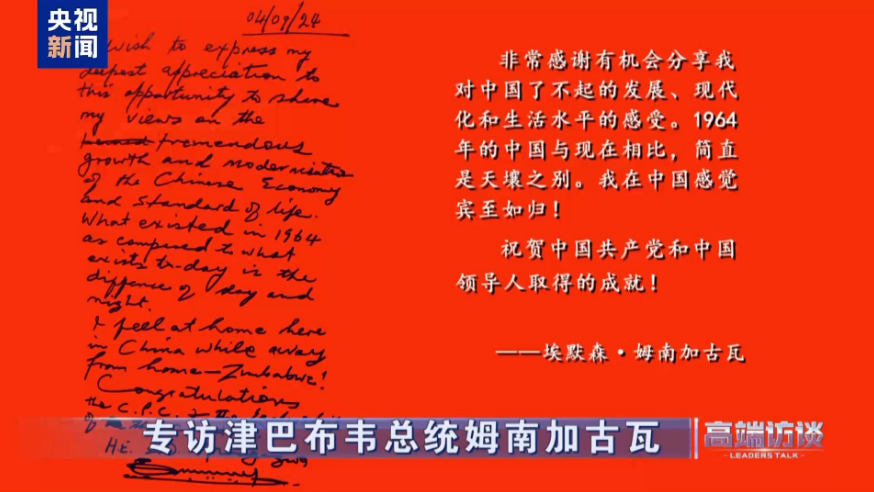 央视
新闻
04/09/24
I wish to express my
deepest appreciation to
this opportunity to share
my views on the
tremendous
growth and modernisation
of the Chinese Economy
and standard of life.
What existed in 1964
as compared to what
exists to-day is the
difference of day and
night.
I feel at home here
in China while away
from home - Zimbabwe!
Congratulations
the C.P.C.
H.E.
非常感谢有机会分享我
对中国了不起的发展、现代
化和生活水平的感受。1964
年的中国与现在相比，简直
是天壤之别。我在中国感觉
宾至如归！
祝贺中国共产党和中国
领导人取得的成就！
——埃默森·姆南加古瓦
专访津巴布韦总统姆南加古瓦
高端访谈
LEADERS TALK